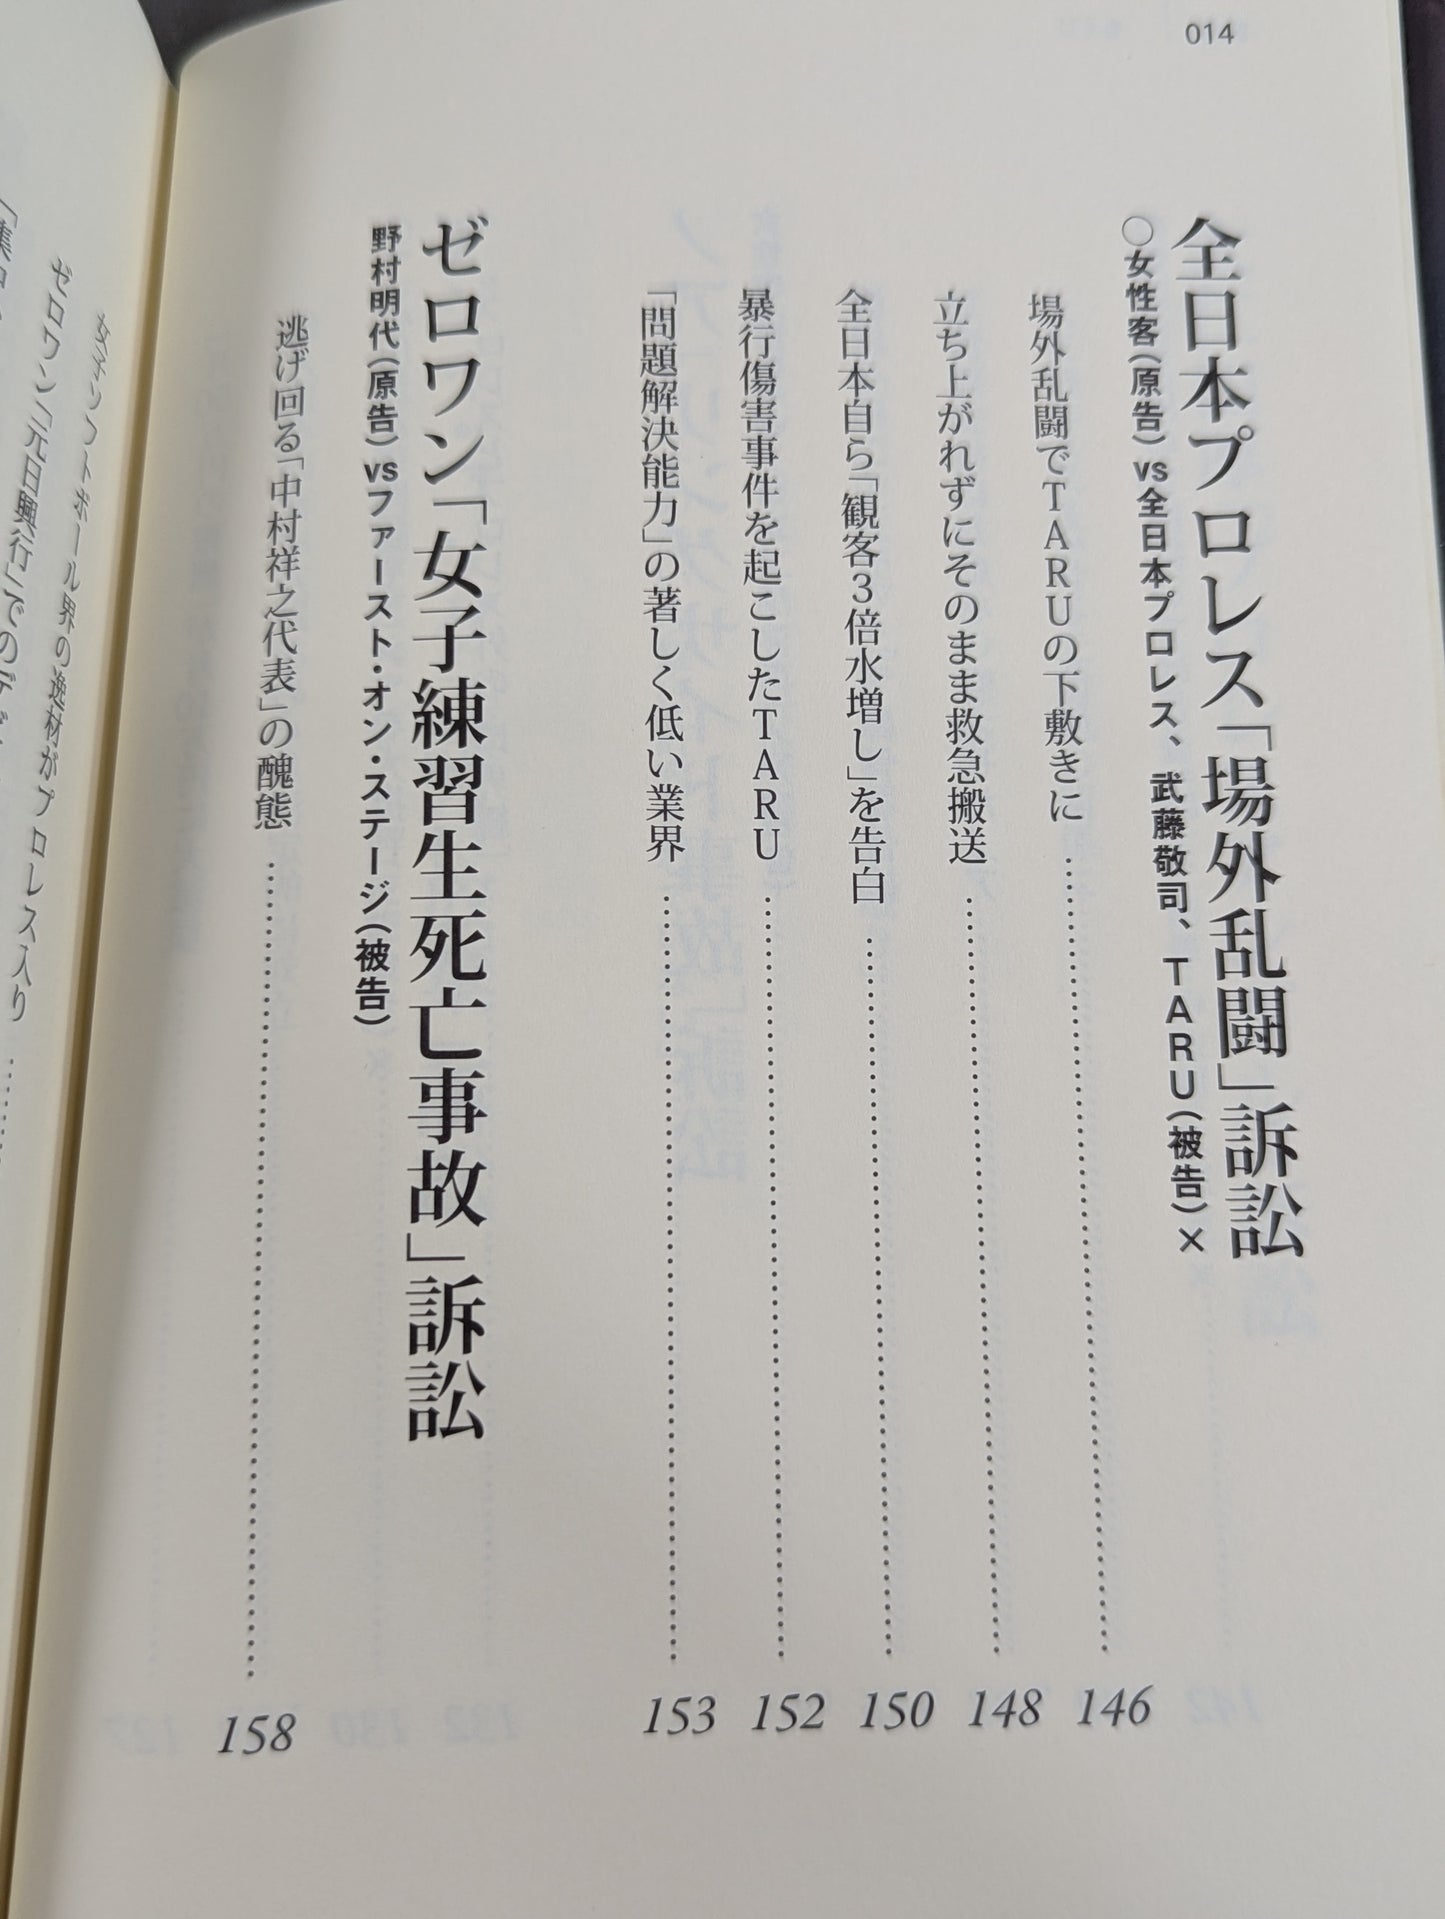 014
全日本プロレス「場外乱闘」訴訟
○女性客(原告)vs全日本プロレス、武藤敬司、TARU(被告)×
場外乱闘でTARUの下敷きに……146
立ち上がれずにそのまま救急搬送……148
全日本自ら「観客3倍水増し」を告白……150
暴行傷害事件を起こしたTARU……152
「問題解決能力」の著しく低い業界……153
ゼロワン「女子練習生死亡事故」訴訟
野村明代(原告)vsファースト・オン・ステージ(被告)
逃げ回る「中村祥之代表」の醜態……158
女子ソフトボール界の逸材がプロレス入り……
ゼロワン「元日興行」での